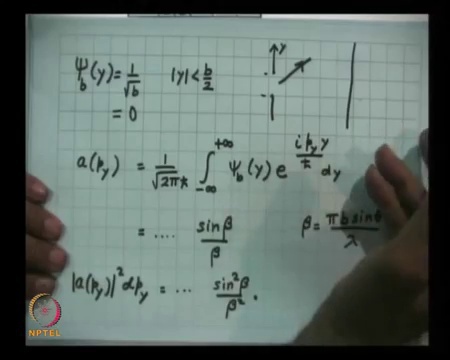 Ψ_b(y) = 1/√b |y| < b/2
= 0
y
a(p_y) = 1/√(2πħ) ∫_{-∞}^{+∞} Ψ_b(y) e^{i p_y y/ħ} dy
= .... sin β/β β = πb sin θ/λ
|a(p_y)|² dp_y = ... sin²β/β² .
NPTEL